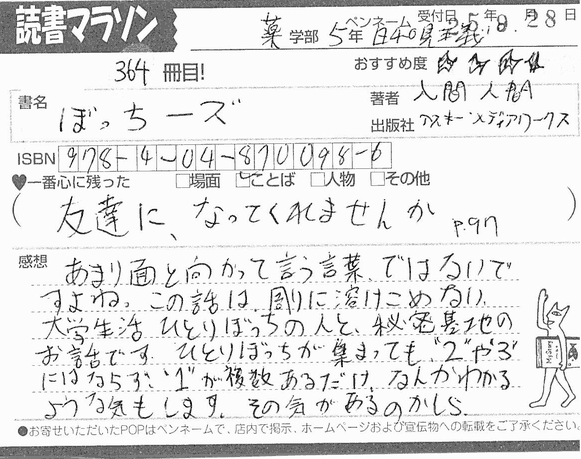 読書マラソン
ペンネーム 受付日 25年9月28日
薬 学部 5年 日和見主義
364 冊目!
おすすめ度 ☆☆☆☆
書名 ぼっちーズ
著者 入間人間
出版社 アスキー・メディアワークス
ISBN 978-4-04-870098-6
♥一番心に残った □場面 ☑ことば □人物 □その他
( 友達に、なってくれませんか P.97 )
感想
あまり面と向かって言う言葉、ではないで
すよねっ この話は、周りに溶けこめない、
大学生活ひとりぼっちの人と、秘密基地の
お話です。ひとりぼっちが集まっても"2"や"3"
にはならず、"1"が複数あるだけ、なんかわかる
ような気もします。その気があるのかしら
●お寄せいただいたPOPはペンネームで、店内で掲示、ホームページおよび宣伝物への転載をご了承ください。